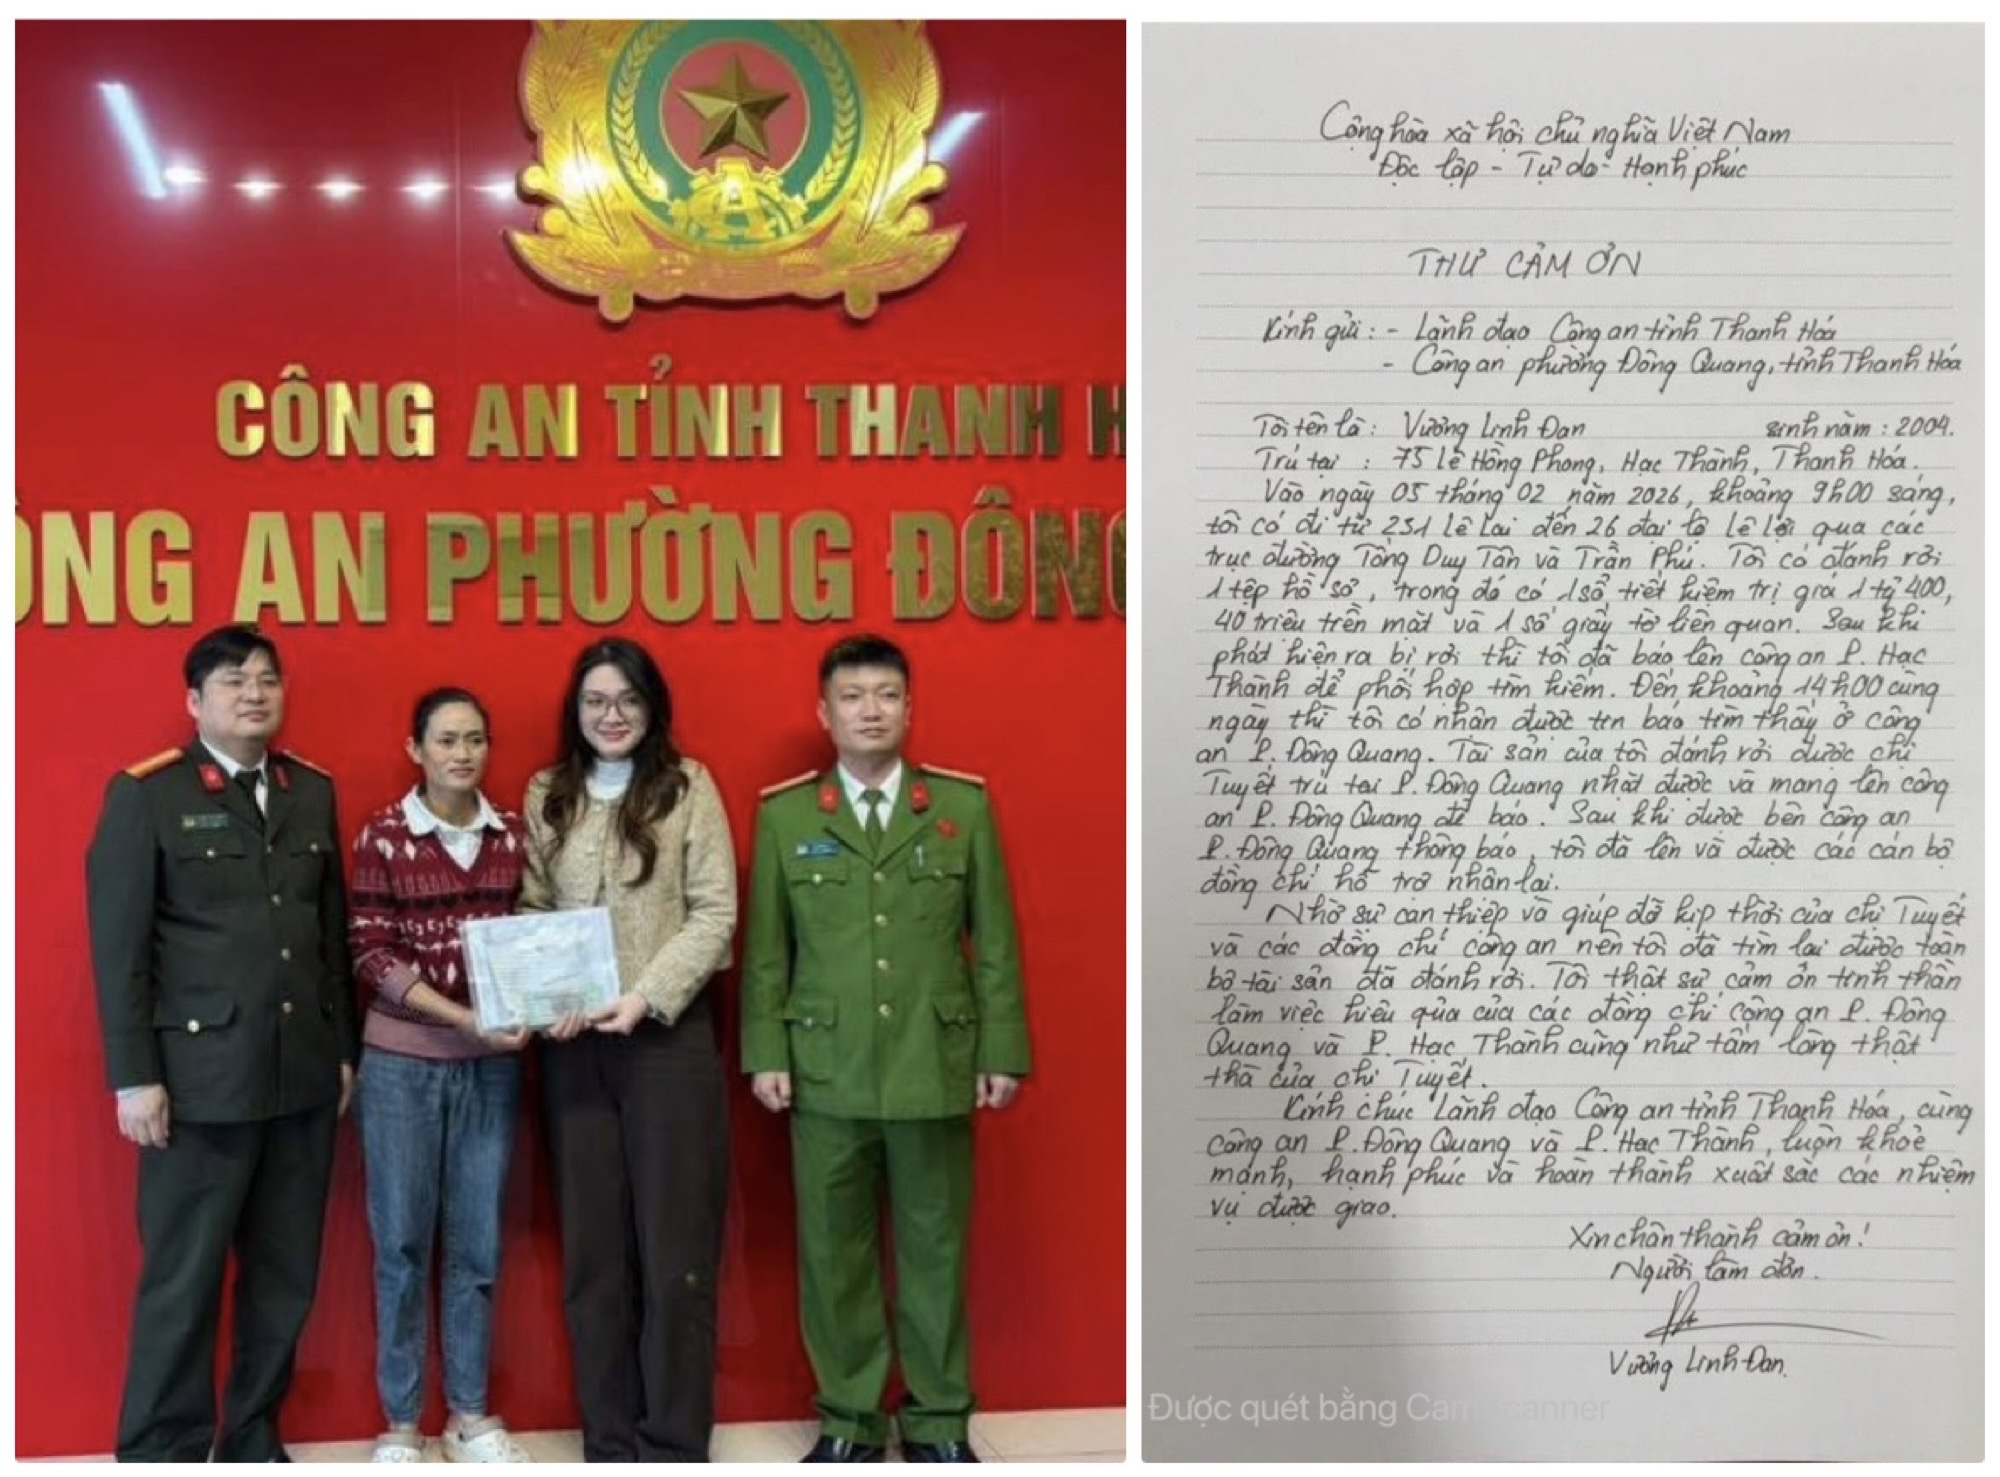 CÔNG AN TỈNH THANH H
ÔNG AN PHƯỜNG ĐÔNG
Cộng hòa xã hội chủ nghĩa Việt Nam
Độc lập - Tự do - Hạnh phúc
THƯ CẢM ƠN
Kính gửi : - Lãnh đạo Công an tỉnh Thanh Hóa
- Công an phường Đông Quang, tỉnh Thanh Hóa
Tôi tên là : Vương Linh Đan sinh năm : 2004.
Trú tại : 75 Lê Hồng Phong, Hạc Thành, Thanh Hóa.
Vào ngày 05 tháng 02 năm 2026, khoảng 9h00 sáng,
tôi có đi từ 231 Lê Lai đến 26 đại lộ Lê Lợi qua các
trục đường Tống Duy Tân và Trần Phú. Tôi có đánh rơi
1 tệp hồ sơ, trong đó có 1 sổ tiết kiệm trị giá 1 tỷ 400,
40 triệu tiền mặt và 1 số giấy tờ liên quan. Sau khi
phát hiện ra bị rơi thì tôi đã báo lên công an P. Hạc
Thành để phối hợp tìm kiếm. Đến khoảng 14h00 cùng
ngày thì tôi có nhận được tin báo tìm thấy ở công
an P. Đông Quang. Tài sản của tôi đánh rơi được chị
Tuyết trú tại P. Đông Quang nhặt được và mang lên công
an P. Đông Quang để báo. Sau khi được bên công an
P. Đông Quang thông báo, tôi đã lên và được các cán bộ
đồng chí hỗ trợ nhận lại.
Nhờ sự can thiệp và giúp đỡ kịp thời của chị Tuyết
và các đồng chí công an nên tôi đã tìm lại được toàn
bộ tài sản đã đánh rơi. Tôi thật sự cảm ơn tinh thần
làm việc hiệu qủa của các đồng chí công an P. Đông
Quang và P. Hạc Thành cũng như tấm lòng thật
thà của chị Tuyết.
Kính chúc Lãnh đạo Công an tỉnh Thanh Hóa, cùng
công an P. Đông Quang và P. Hạc Thành, luôn khỏe
mạnh, hạnh phúc và hoàn thành xuất sắc các nhiệm
vụ được giao.
Xin chân thành cảm ơn!
Người làm đơn.
Vương Linh Đan.
Được quét bằng CamScanner